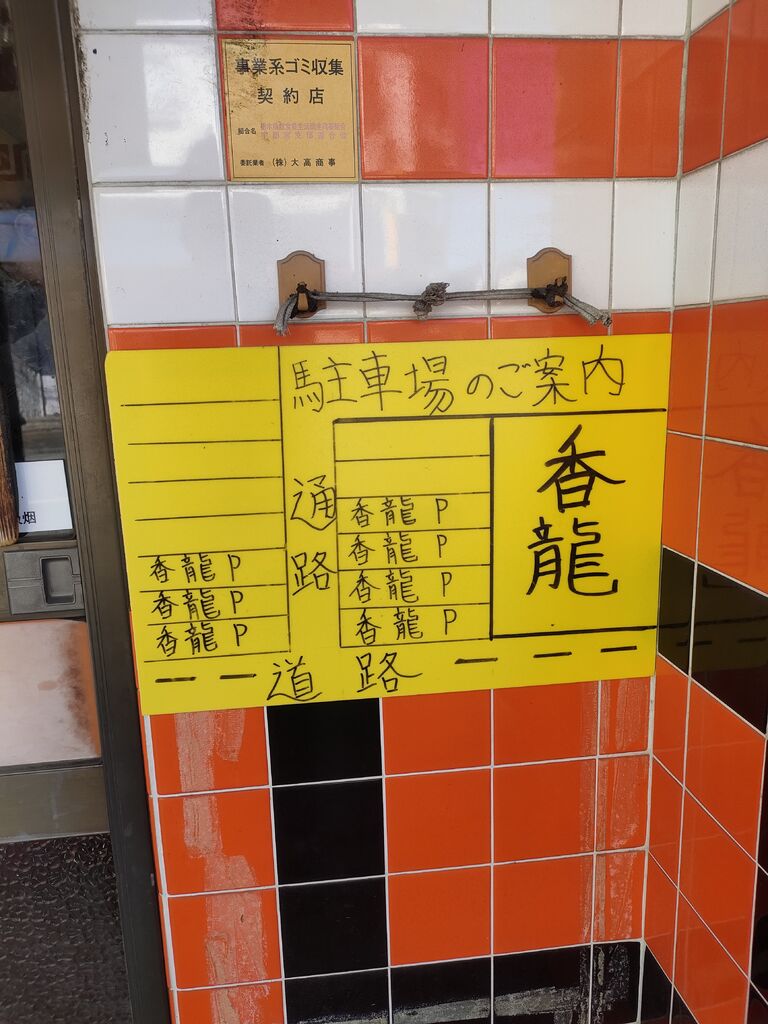 事業系ゴミ収集
契約店
組合名
委託業者 (株)大高商事
駐車場のご案内
香龍
通路
香龍 P
香龍 P
香龍 P
香龍 P
香龍 P
香龍 P
香龍 P
道路
烟